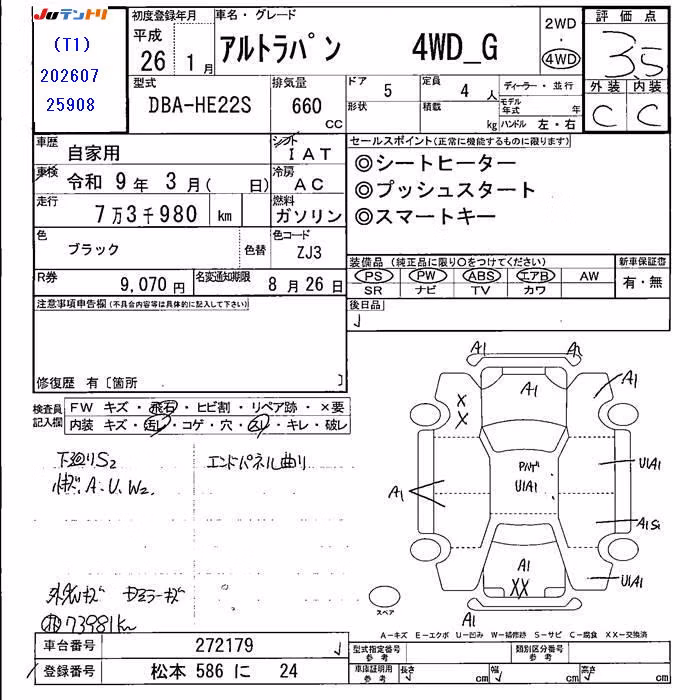 JUナントリ
(T1)
202607
25908
初度登録年月
平成
26 1月
車名・グレード
アルトラパン 4WD_G
2WD
・
4WD
評価点
3.5
外装 内装
C C
型式
DBA-HE22S
排気量
660 cc
ドア
5
形状
定員
4 人
積載
kg
ディーラー・並行
モデル年式 年
ハンドル 左・右
車歴
自家用
シフト
IAT
車検 令和 9年 3月( 日)
冷房
AC
走行
7万3千980 km
燃料
ガソリン
色
ブラック
色替
色コード
ZJ3
R券
9,070円
名変通知期限
8月26日
セールスポイント(正常に機能するものに限ります)
◎シートヒーター
◎プッシュスタート
◎スマートキー
装備品(純正品に限り○をつけてください)
PS PW ABS エアB AW
SR ナビ TV カワ
新車保証書
有・無
後日品
注意事項申告欄(不具合内容等は具体的に記入して下さい)
修復歴 有〔箇所 〕
検査員記入欄
FW キズ・飛石・ヒビ割・リペア跡・×要
内装 キズ・汚レ・コゲ・穴・スレ・キレ・破レ
下廻りS2
エンドパネル曲り
A.U.W2
73981km
A1
A1
A1
A1
U1A1
A1
U1A1
A1S1
A1
XX
U1A1
A1
スペア
A-キズ E-エクボ U-凹み W-補修跡 S-サビ C-腐食 XX-交換済
車台番号 272179
登録番号 松本 586 に 24
型式指定番号
参考
類別区分番号
参考
車庫証明用
参考
長さ cm 幅 cm 高さ cm